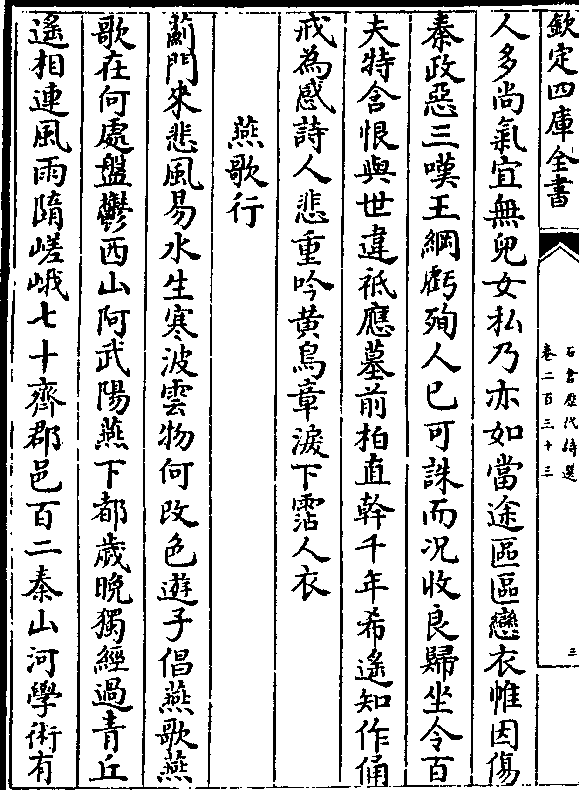 欽定四庫全書
石倉歷代詩選
卷二百三十三
三
人多尚氣宜無兒女私乃亦如當途區區戀衣帷因傷
秦政惡三嘆王綱虧殉人已可誅而况收良歸坐令百
夫特含恨與世違祗應墓前柏直幹千年希遙知作俑
戒為感詩人悲重吟黄鳥章淚下霑人衣
燕歌行
薊門來悲風易水生寒波雲物何改色遊子倡燕歌燕
歌在何處盤鬱西山阿武陽燕下都歲晚獨經過青丘
遙相連風雨隋嵯峨七十齊郡邑百二秦山河學術有